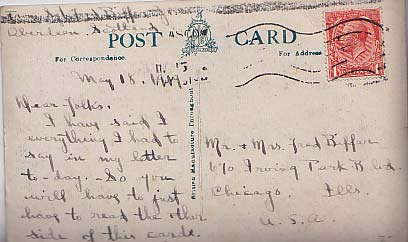 Aberdeen, Scotland
POST CARD
For Correspondence.
For Address
British Manufacture Throughout
May 18.
Dear Folks.
I have said I
everything I had to
say in my letter
to-day. So you
will have to just
have to read the other
side of this card.
Mr. & Mrs. Fred Biffar
670 Irving Park Blvd.
Chicago. Ills.
U.S.A.